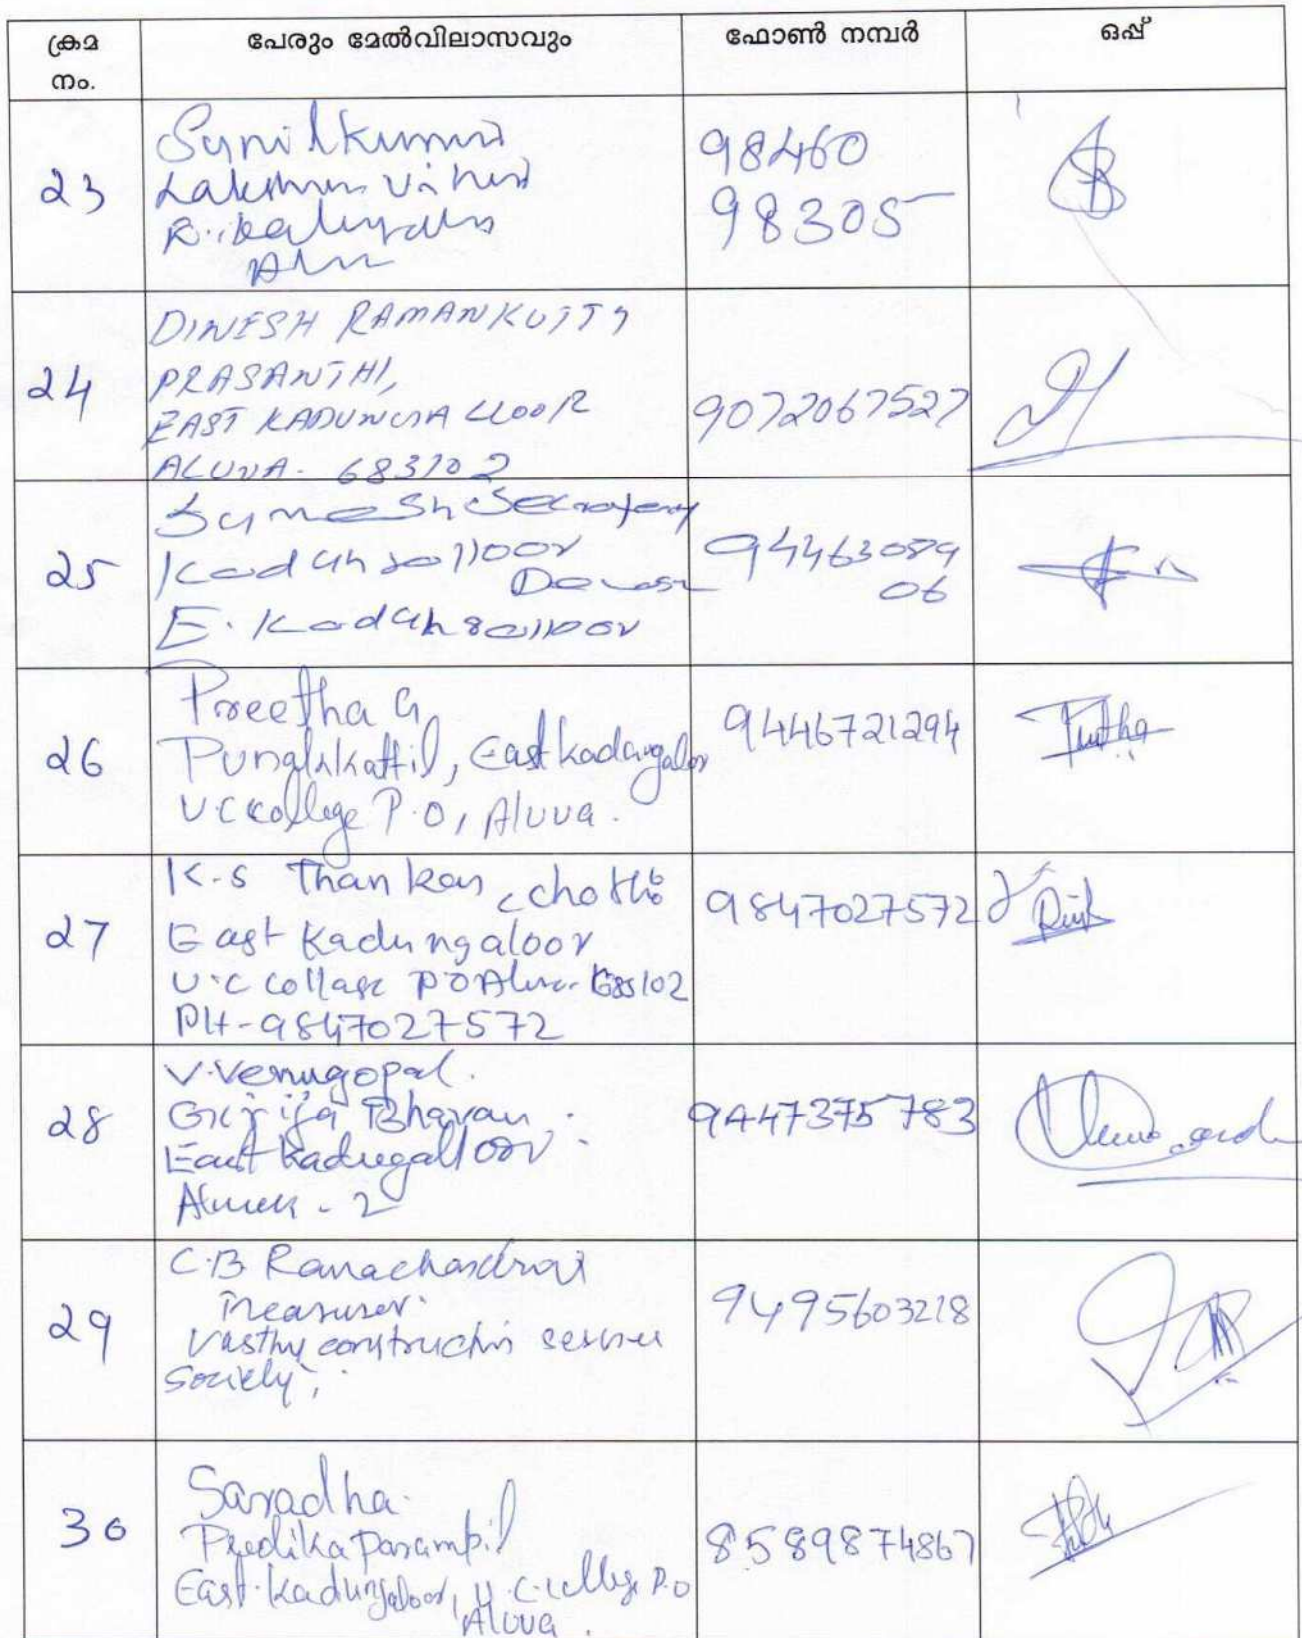 ക്രമ നം. പേരും മേൽവിലാസവും ഫോൺ നമ്പർ ഒപ്പ്
23
Sunilkumar
98460
98305
24
DINESH RAMANKUTTY
PRASANTHI,
EAST KADUNGALLOOR
ALUVA- 683102
9072067527
25
Sumesh Secretary
E.
94463089
06
26
Preetha G,
East Kadungaloor
U.C College P.O, Aluva.
9446721294
Preetha
27
K.S Thankan
East Kadungaloor
U.C collage P.O Aluva- 683102
PH-9847027572
9847027572
28
V.Venugopal.
Girija Bhavan
East Kadugalloor
Aluva - 2
9447375783
29
C.B Ramachandran
Treasurer.
construction service
Society,
9495603218
30
Saradha.
Parampil
East-Kadungaloor, U.C-College P.O
Aluva.
8589874867